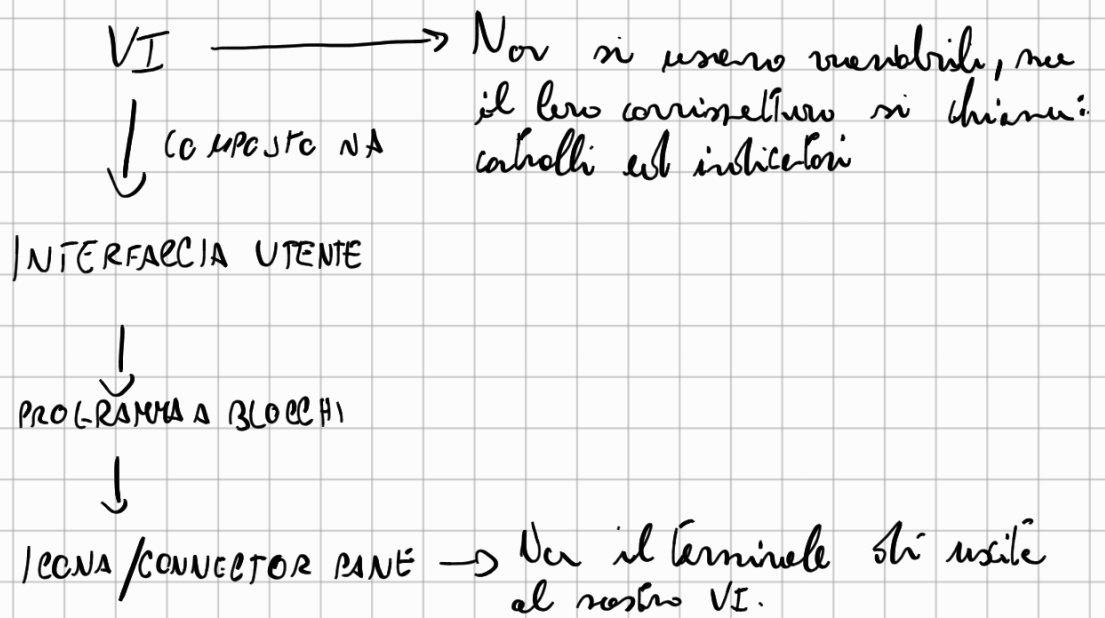 VI → Non si usano variabili, ma
il loro corrispettivo si chiama:
COMPOSTO DA
controlli ed indicatori
INTERFACCIA UTENTE
PROGRAMMA A BLOCCHI
ICONA/CONNECTOR PANE → Da il terminale di uscita
al nostro VI.